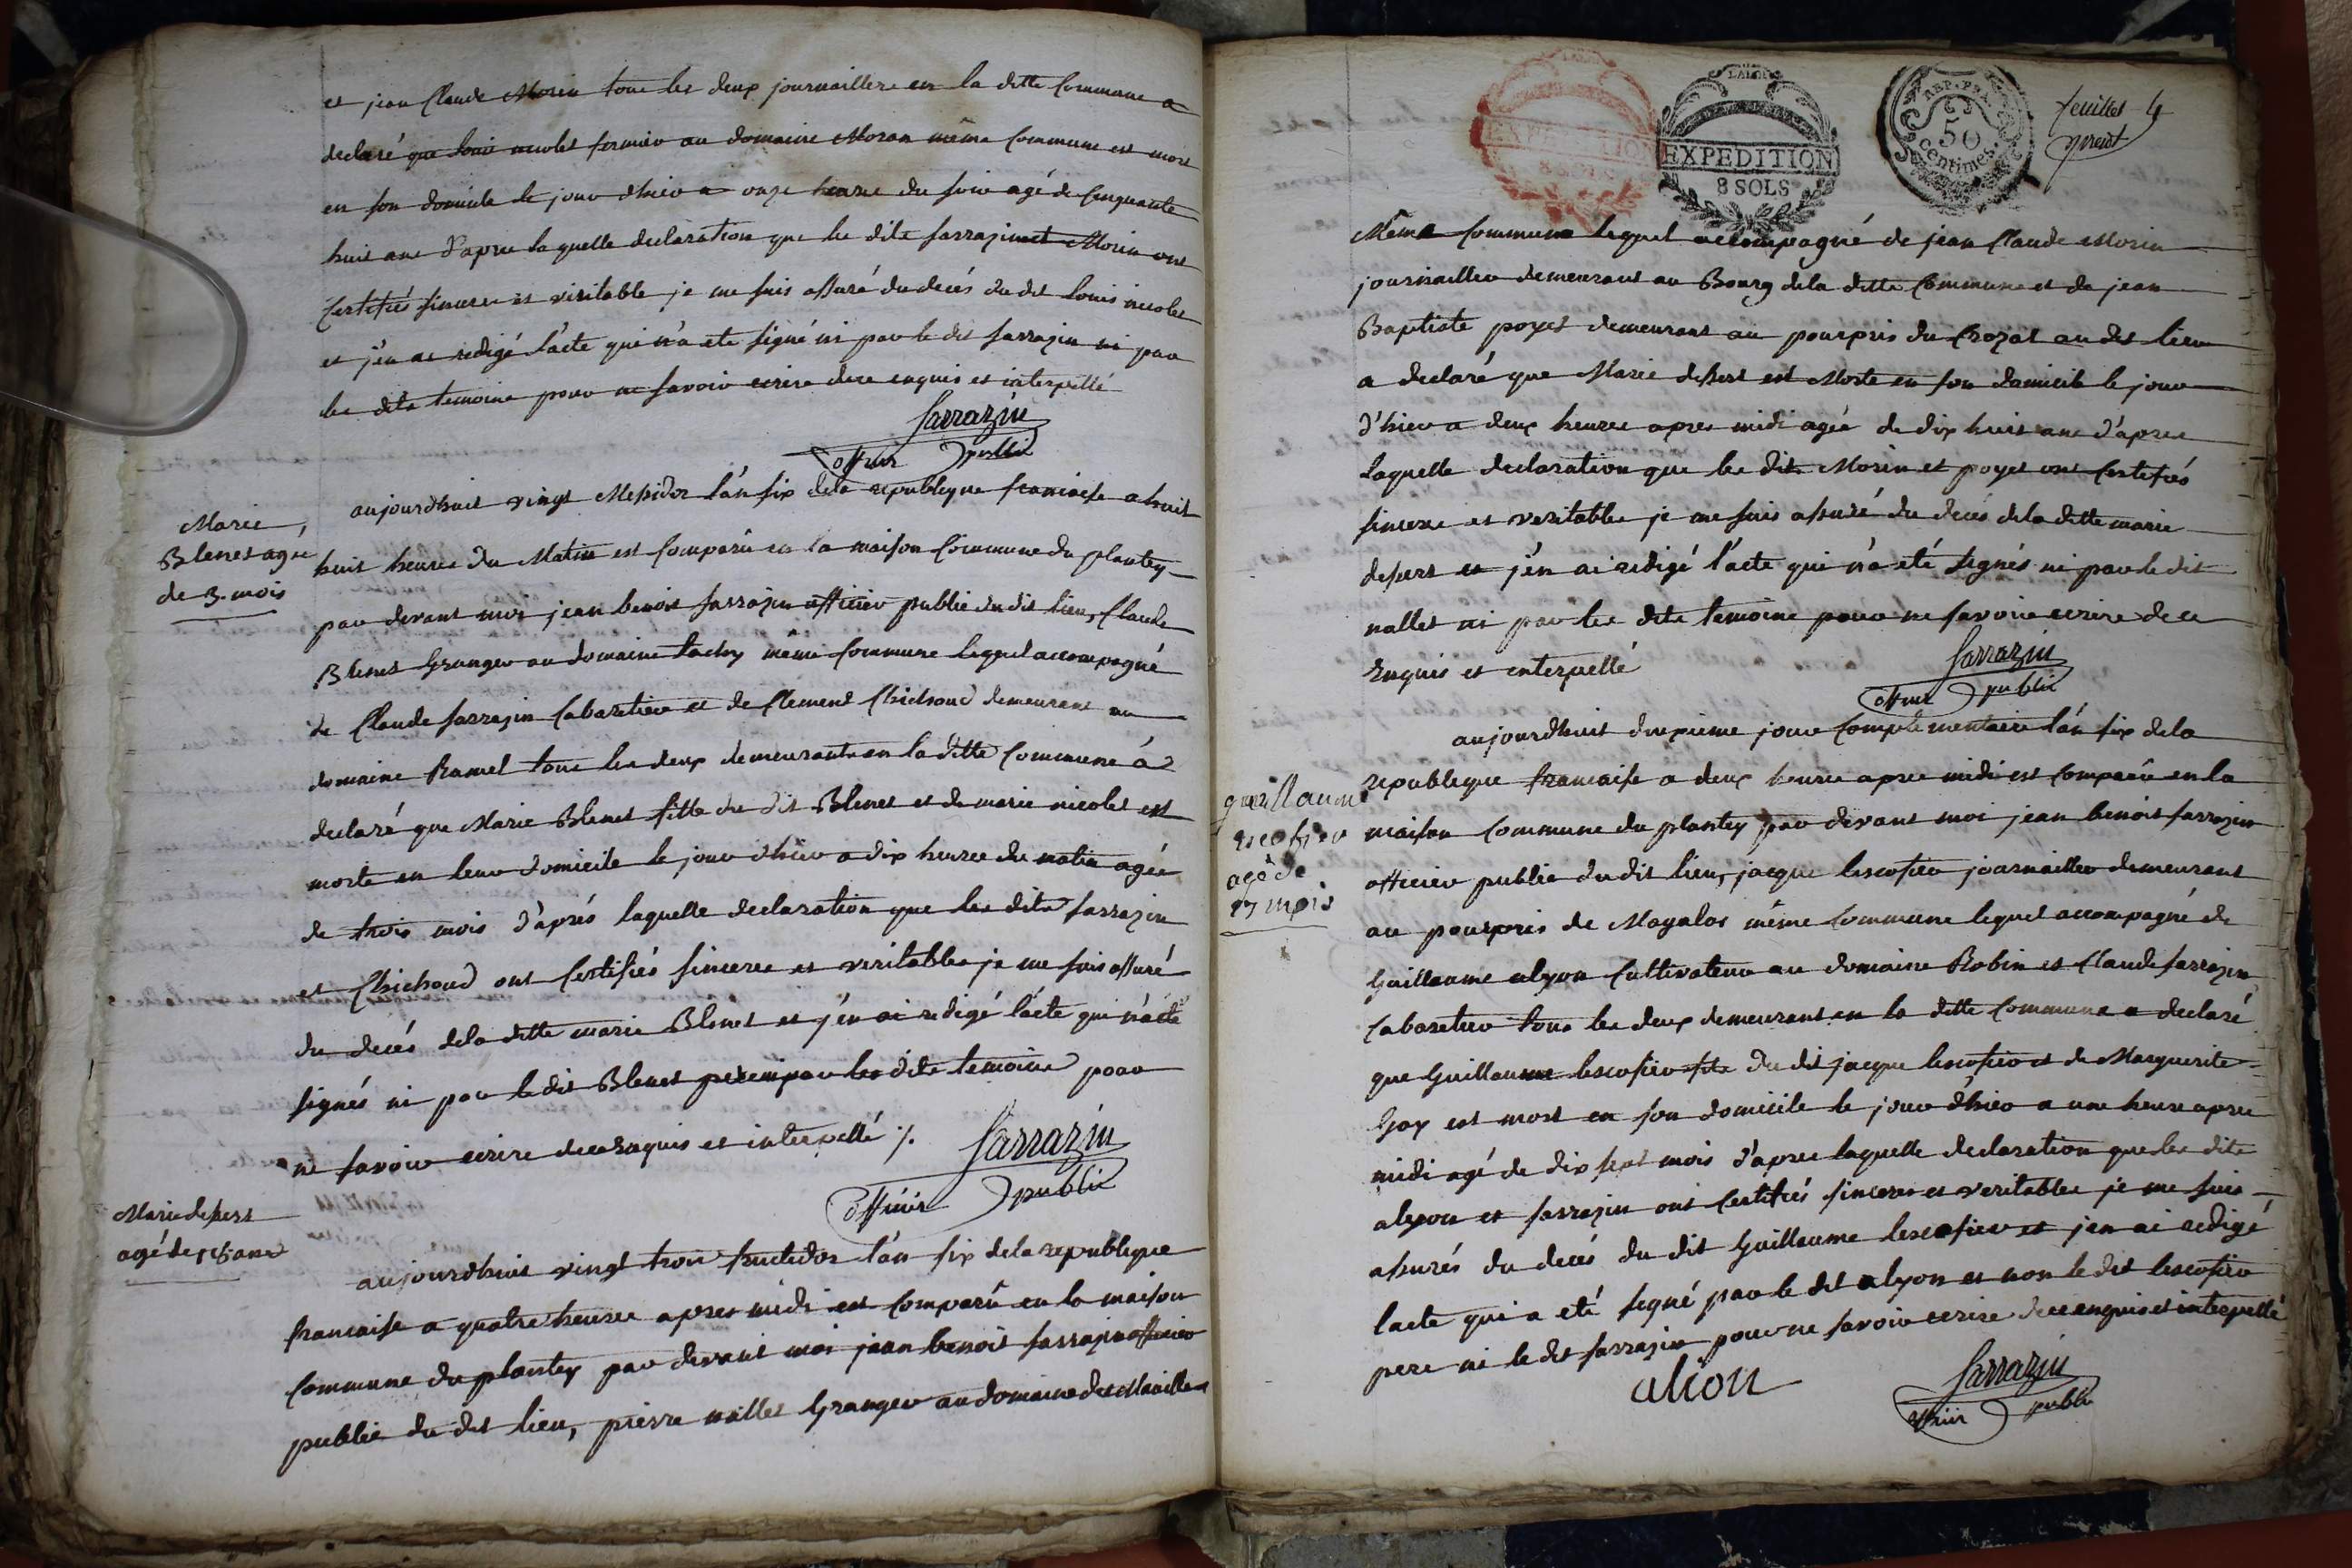 et jean Claude Morin tous les deux journailliers en la ditte Commune a
declaré que louis nicolet fermier au domaine Moran même Commune est mort
en son domicile le jour d'hier a onze heures du soir agé de Cinquante
huit ans d'apres laquelle declaration que les dits sarrazin et Morin ont
Certifiés sincere et veritable je me suis assuré du decés du dit Louis nicolet
et j'en ai redigé l'acte qui n'a eté signé ni par le dit sarrazin ni par
les dits temoins pour ne savoir ecrire de ce enquis et interpellé
Sarrazin
officier public
Marie
Blenet agé
de 3. mois
aujourdhuit vingt Messidor l'an six de la republique francaise a huit
huit heures du Matin est Comparû en la maison Commune du plantey
par devant moi jean benoit sarrazin officier public du dit lieu, Claude
Blenet Granger au domaine tachy même Commune lequel accompagné
de Claude sarrazin Cabaretier et de Clement Chichoud demeurant au
domaine Ramel tous les deux demeurants en la ditte Commune à
declaré que Marie Blenet fille du dit Blenet et de marie nicolet est
morte en leur domicile le jour d'hier a dix heures du matin agée
de trois mois d'aprés laquelle declaration que les dits sarrazin
et Chichoud ont Certifiés sinceres et veritables je me suis assuré
du decés de la ditte marie Blenet et j'en ai redigé l'acte qui n'a eté
signés ni par le dit Blenet pere ni par les dits temoins pour
ne savoir ecrire de ce enquis et interpellé ./.
Sarrazin
officier public
Marie depert
agé de 18 ans
aujourdhuit vingt trois fructidor l'an six de la republique
francaise a quatre heures apres midi est Comparû en la maison
Commune du plantey par devant moi jean benoit sarrazin officier
public du dit lieu, pierre nallet Granger au domaine des Mailles
feuillet 4
EXPEDITION
8 SOLS
LA LOI
EXPEDITION
8 SOLS
REP. FRA.
50
centimes.
Même Commune lequel accompagné de jean Claude Morin
journaillier demeurant au Bourg de la ditte Commune et de jean
Baptiste poyet demeurant au pourpris du Crozat au dit lieu
a declaré que Marie depert est Morte en son domicile le jour
d'hier a deux heures apres midi agée de dix huit ans d'apres
laquelle declaration que les dits Morin et poyet ont Certifiés
sincere et veritables je me suis assuré du decés de la ditte marie
depert et j'en ai redigé l'acte qui n'a eté signés ni par le dit
nallet ni par les dits temoins pour ne savoir ecrire de ce
enquis et interpellé
Sarrazin
officier public
guillaume
escofier
agé de
17 mois
aujourdhuit deuxieme jour Complementaire l'an six de la
republique francaise a deux heures apres midi est Comparû en la
maison Commune du plantey par devant moi jean benoit sarrazin
officier public du dit lieu, jacque lescofier journaillier demeurant
au pourpris de Mayalos même Commune lequel accompagné de
Guillaume alyon Cultivateur au domaine Robin et Claude sarrazin
Cabaretier tous les deux demeurant en la ditte Commune a declaré
que Guillaume lescofier fils du dit jacque lescofier et de Marguerite
Goy est mort en son domicile le jour d'hier a une heure apres
midi agé de dix sept mois d'apres laquelle declaration que les dits
alyon et sarrazin ont Certifiés sinceres et veritables je me suis
assurés du decés du dit Guillaume lescofier et j'en ai redigé
l'acte qui a eté signé par le dit alyon et non le dit lescofier
pere ni le dit sarrazin pour ne savoir ecrire de ce enquis et interpellé
alion
Sarrazin
officier public